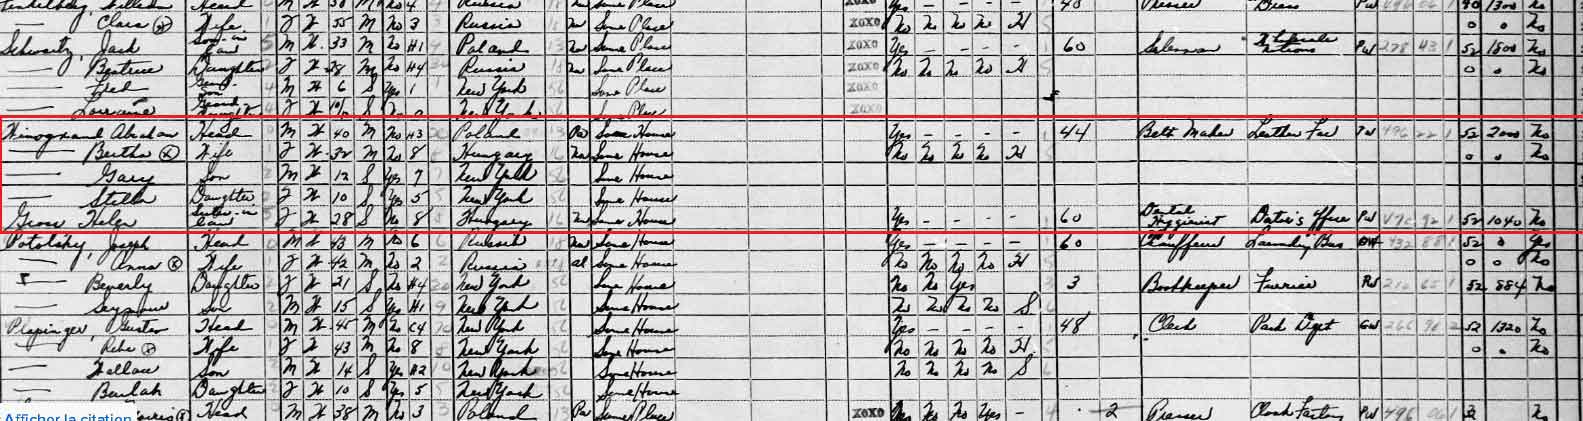 Head M W 50 M No 4 Russia Same Place Yes - - - - 48 Presser Dress PW 496 06 1 40 1300 No
Clara ⓧ Wife F W 55 M No 3 Russia Na Same Place XOXO No No No No H 0 0 No
Schwartz, Jack Son-in Law M W 33 M No H1 Poland Na Same Place XOXO Yes - - - - 60 Salesman PW 278 43 1 52 1800 No
— Beatrice Daughter F W 28 M No H4 Russia Na Same Place XOXO No No No No H 0 0 No
— Fred Grand-Son M W 6 S Yes 1 New York Same Place XOXO
— Lorraine Grand Daughter F W S No 0 New York Same Place XOXO
Winogrand Abraham Head M W 40 M No H3 Poland Pa Same House Yes - - - - 44 Belt Maker Leather Fac PW 496 22 1 52 2000 No
— Bertha ⓧ Wife F W 32 M No 8 Hungary Na Same House No No No No H 0 0 No
— Gary Son M W 12 S Yes 7 New York Same House
— Stella Daughter F W 10 S Yes 5 New York Same House
Gross Helen Sister-in Law F W 28 S No 8 Hungary Na Same House Yes - - - - 60 Dental Hygienist Doctor's Office PW 52 1040 No
Pototsky, Joseph Head M W 43 M No 6 Russia Na Same House Yes - - - - 60 Chauffeur Laundry Bus OW 432 88 1 52 0 Yes
— Anna ⓧ Wife F W 42 M No 2 Russia al Same House No No No No H 0 0 No
— Beverly Daughter F W 21 S No H4 New York Same House No No Yes 3 Bookkeeper Furrier PW 52 884 No
— Seymour Son M W 15 S Yes H1 New York Same House No No No No S
Plapinger, Gustav Head M W 45 M No C4 New York Same House Yes - - - - 48 Clerk Park Dept GW 266 98 2 52 1320 No
— Reba ⓧ Wife F W 43 M No 8 New York Same House No No No No H 0 0 No
— Son M W 14 S Yes H2 New York Same House No No No No S
— Beulah Daughter F W 10 S Yes 5 New York Same House
Afficher la citation Head M W 38 M No 3 Poland Pa Same Place XOXO Yes No No Yes - 2 Presser Cloak Factory PW 496 06 1 No